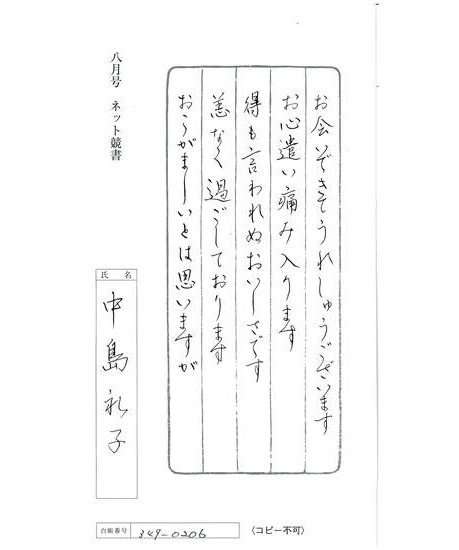 お会いできてうれしゅうございます
お心遣い痛み入ります
得も言われぬおいしさです
恙なく過ごしております
おこがましいとは思いますが
八月号 ネット競書
氏名
中島礼子
台帳番号 349-0206
(コピー不可)